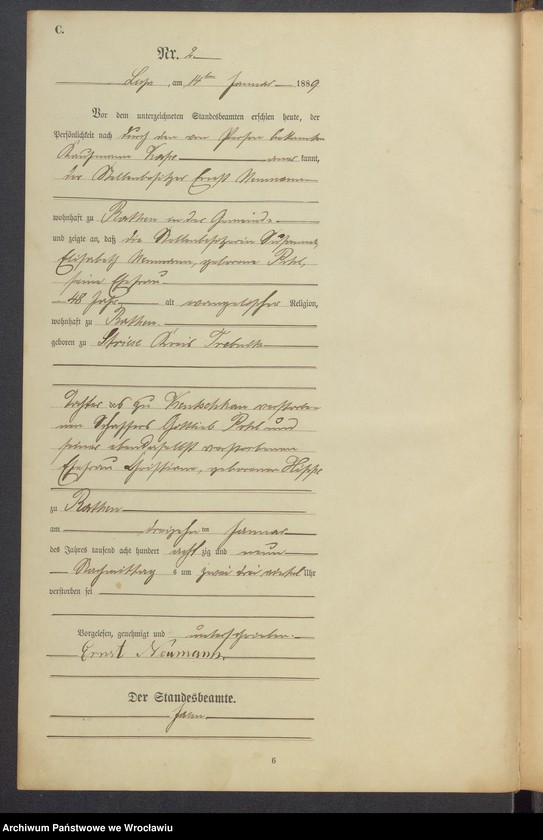 C.
Nr. 2
Lissa, am 14ten Januar 1889
Vor dem unterzeichneten Standesbeamten erschien heute, der
Persönlichkeit nach durch den von Person bekannten
Kaufmann kannt,
der Stellenbesitzer Ernst Neumann
wohnhaft zu Rathen in der Gemeinde
und zeigte an, daß die Stellenbesitzerin Susanna
Elisabeth Neumann, geborene Pohl,
seine Ehefrau
48 Jahr alt evangelischer Religion,
wohnhaft zu Rathen
geboren zu Kreis Trebnitz
Tochter des zu verstorbe-
nen Schaffers Gottlieb Pohl und
seiner ebendaselbst verstorbenen
Ehefrau Christiane, geborenen
zu Rathen
am dreizehnten Januar
des Jahres tausend acht hundert achtzig und neun
Nachmittags um zwei drei viertel Uhr
verstorben sei
Vorgelesen, genehmigt und unterschrieben.
Ernst Neumann.
Der Standesbeamte.
6
Archiwum Państwowe we Wrocławiu